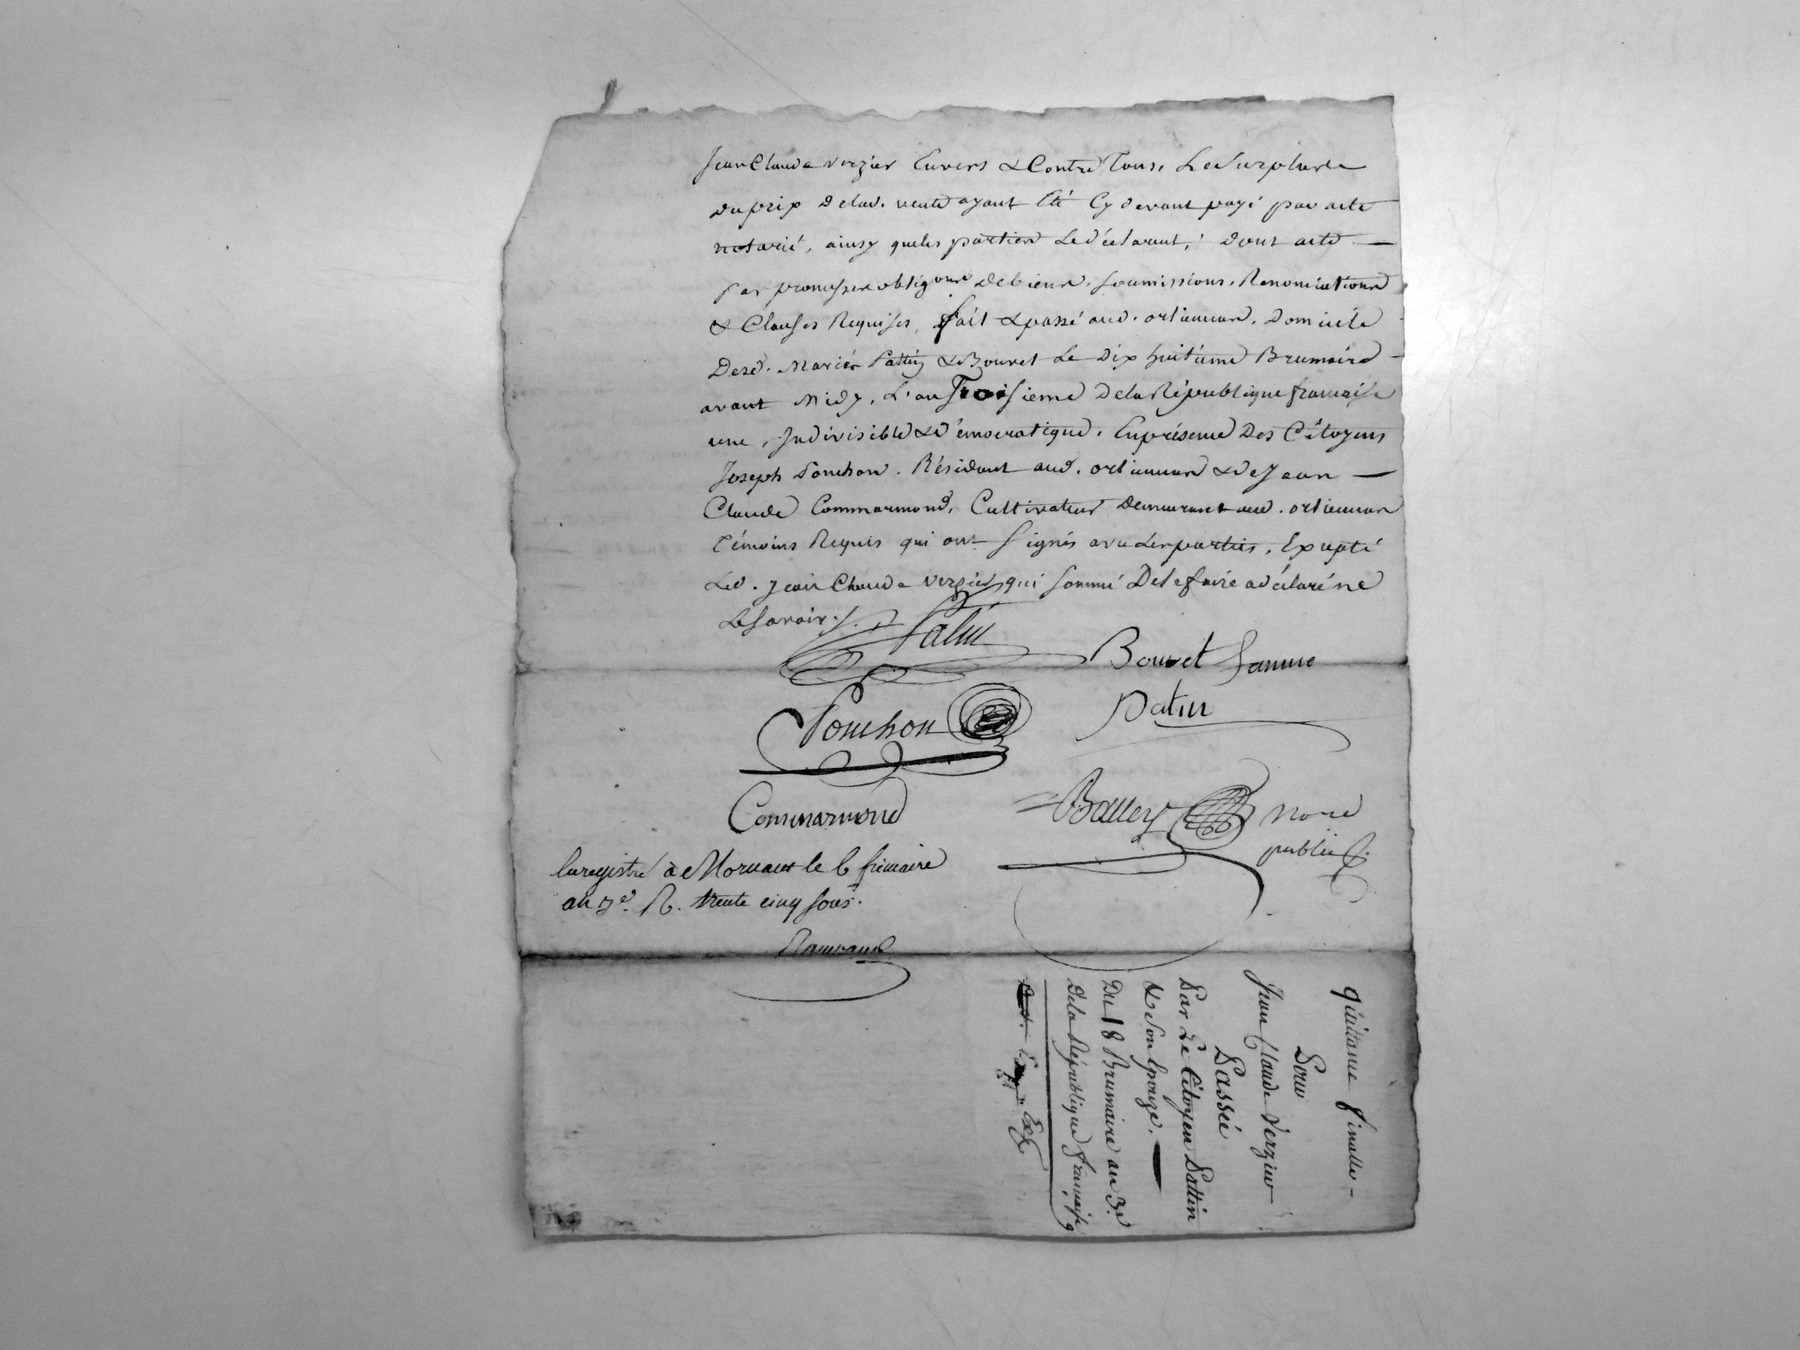 Jean Claude Verzier Envers & Contre Tous, Le Surplus de
du prix de lad. vente ayant Eté Cy devant payé par acte
notarié, ainsy que les parties Le déclarent, dont acte
par promesses oblig.ons de biens, soumissions, Renonciations
& Clauses Requises, fait & passé aud. orliennas, Domicile
Desd. Mariés Pattin & Bouvet Le Dix huitieme Brumaire
avant Midy, L'an Troisieme de la République française
une, Indivisible & Démocratique, En présence Des Citoyens
Joseph Ponchon, Résidant aud. orliennas & de Jean
Claude Commarmond, Cultivateur Demeurant aud. orliennas
Témoins Requis qui ont signés avec les parties, Excepté
Led. Jean Claude Verzier qui sommé De le faire a déclaré ne
Le savoir ./.
Patin
Bouvet famme
Patin
Ponchon
Commarmond
Balley No.re
public
Enregistré à Mornant le 6 frimaire
an 3e. R. trente cinq sous.
quittance finalle
Pour
Jean Claude Verzier
Passée
Par Le Citoyen Pattin
& Son Epouze.
Du 18 Brumaire an 3e.
De la République française